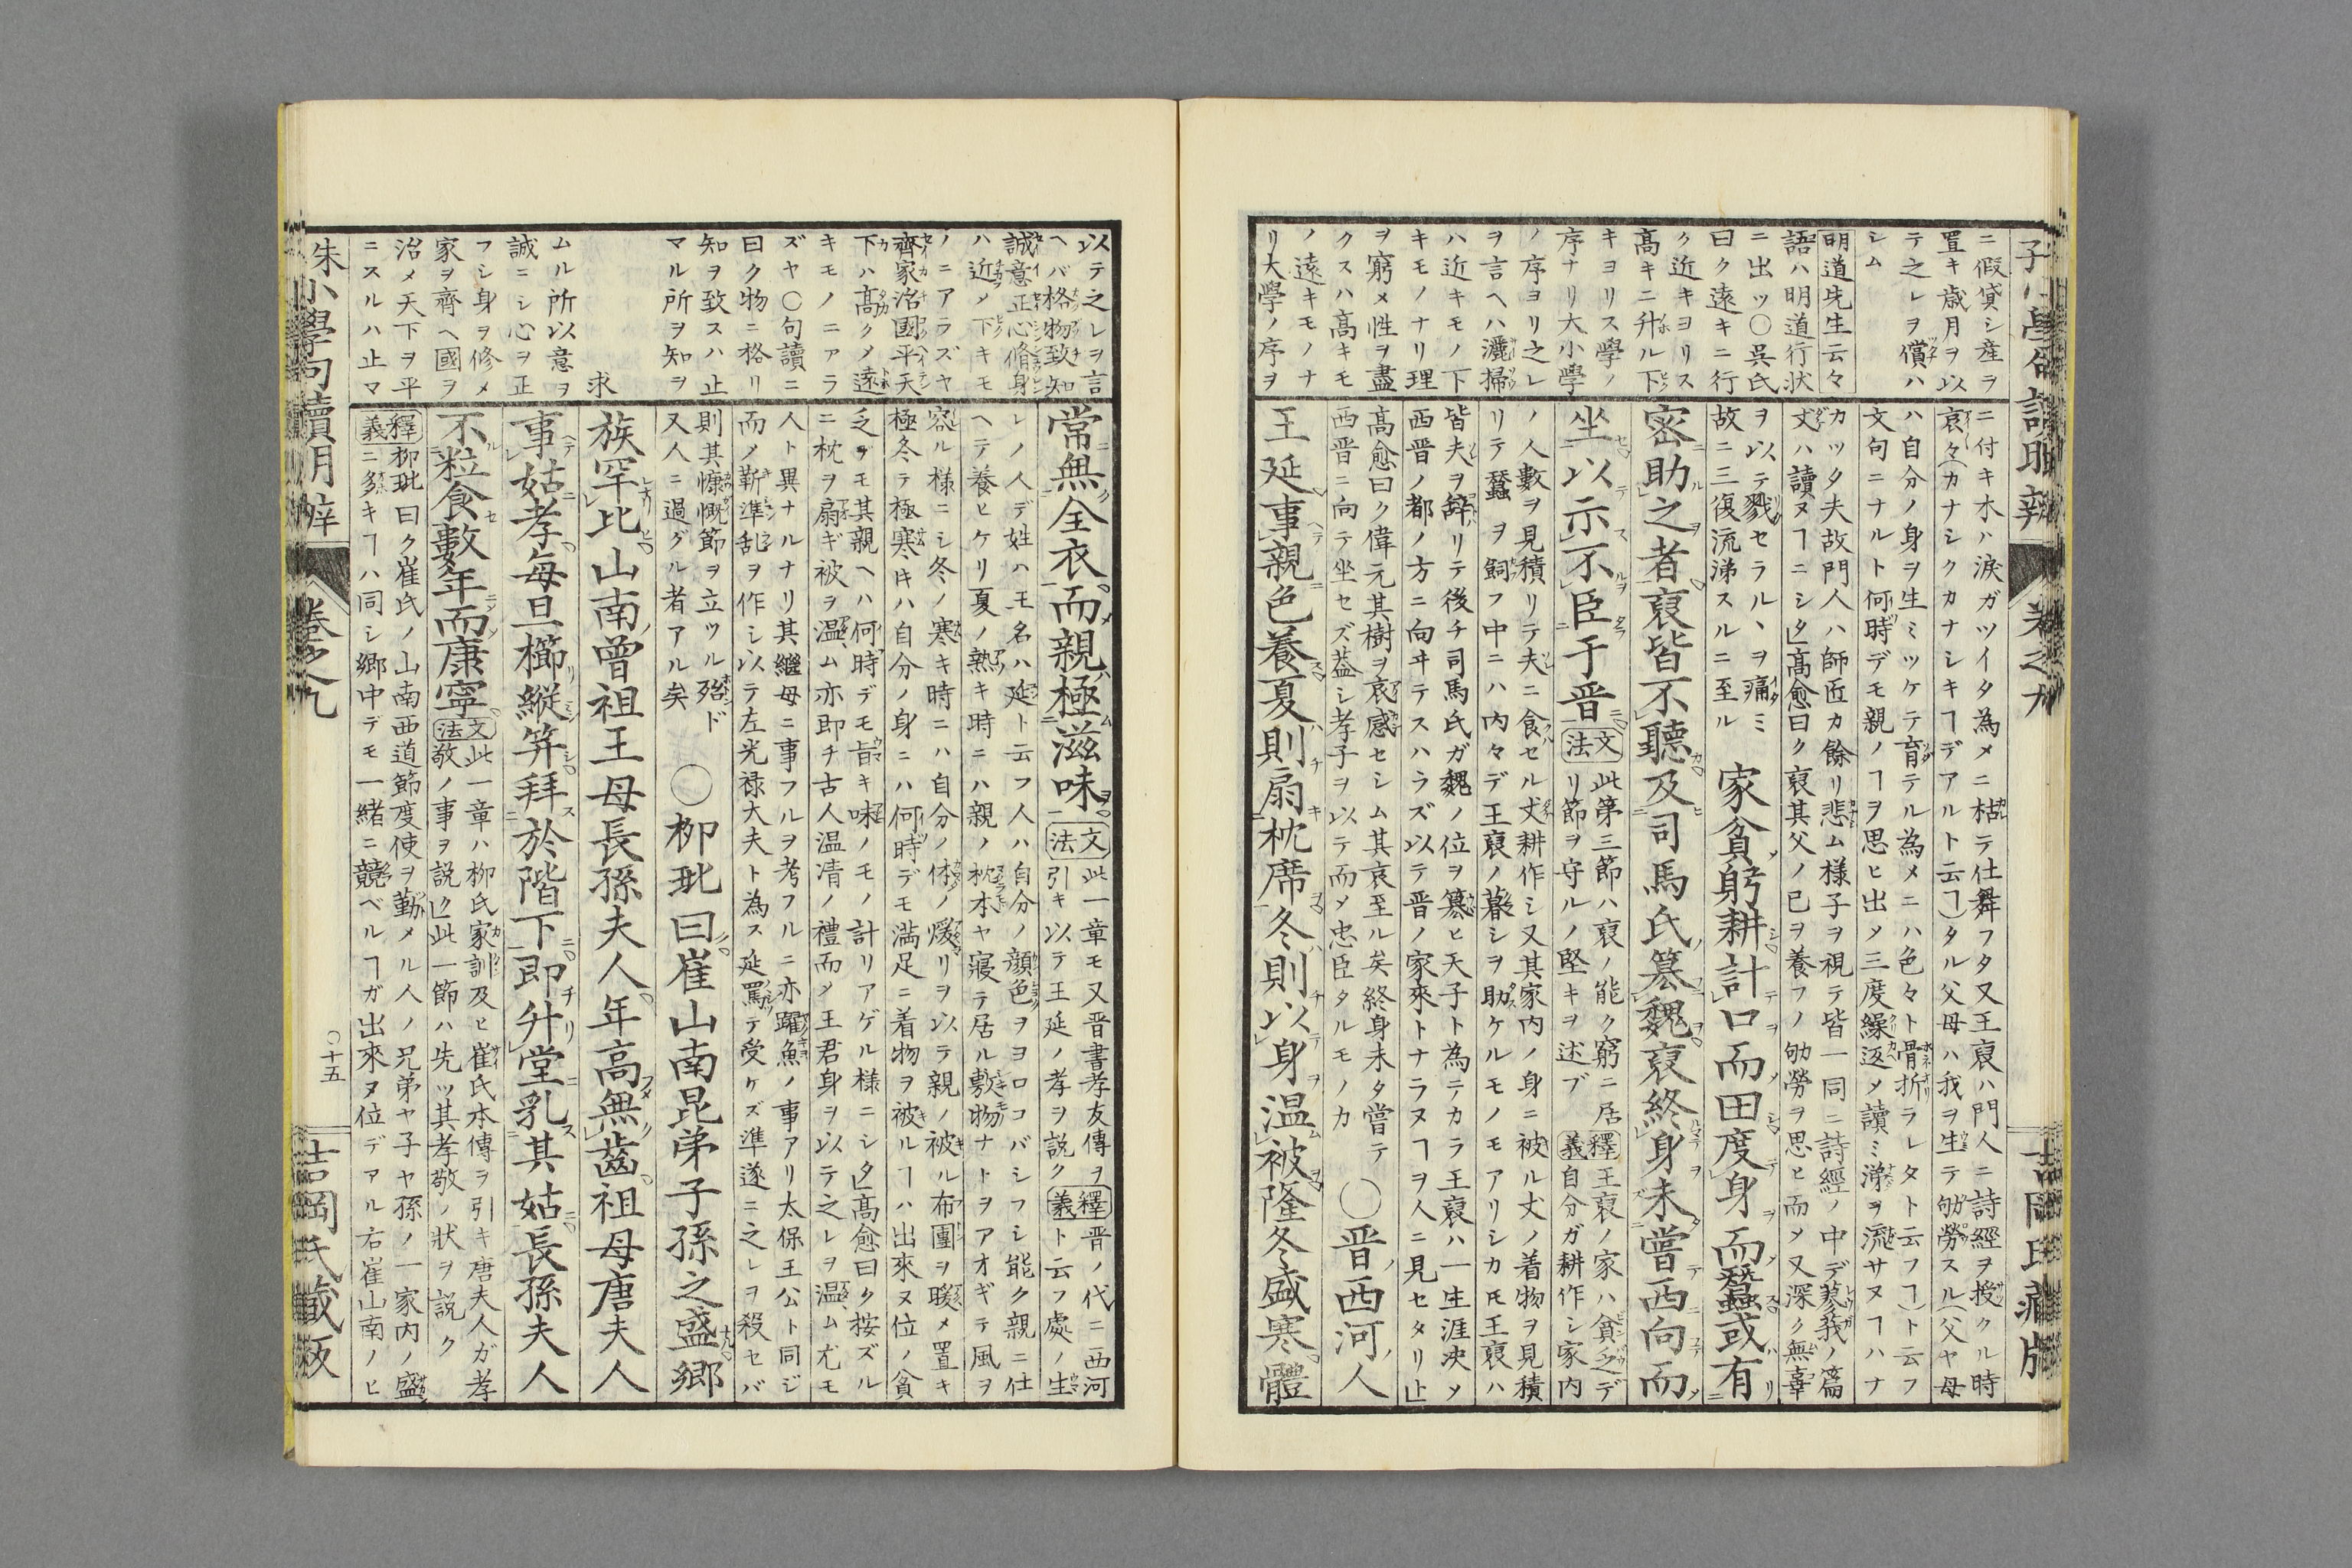 ニ假貸シ産ラ
置キ歳月ヲ以
テ之レヲ償ハ
シム
明道先生云々
語ハ明道行状
ニ出ツ〇呉氏
曰ク遠キニ行
ク近キヨリス
髙キニ升ル下
キヨリス學ノ
序ナリ大小學
ノ序ヨリ之レ
ヲ言ヘハ灑掃
ハ近キモノ下
キモノナリ理
ヲ窮メ性ヲ盡
クスハ髙キモ
ノ遠キモノナ
リ大學ノ序ヲ
ニ付キ木ハ涙ガツイタ為メニ枯テ仕舞フタ又王裒ハ門人ニ詩經ヲ授クル時
哀々(カナシクカナシキヿデアルト云ヿ)タル父母ハ我ヲ生テ劬勞スル(父ヤ母
ハ自分ノ身ヲ生ミツケテ育テル為メニハ色々ト骨折ラレタト云フヿ)ト云フ
文句ニナルト何時デモ親ノヿヲ思ヒ出シ三度繰返メ讀ミ涕ヲ流サヌヿハナ
カツタ夫故門人ハ師匠カ餘リ悲ム様子ヲ視テ皆一同ニ詩經ノ中デ蓼莪ノ篇
丈ハ讀ヌヿニシタ髙愈曰ク裒其父ノ己ヲ養フノ劬勞ヲ思ヒ而メ又深ク無辜
ヲ以テ戮セラルヽヲ痛ミ
故ニ三復流涕スルニ至ル
家貧躬耕計口而田度身而蠶或有
密助之者裒皆不聽及司馬氏簒魏裒終身未嘗西向而
坐以示不臣于晋
文法
此第三節ハ裒ノ能ク窮ニ居
リ節ヲ守ルノ堅キヲ述ブ
釋義
王裒ノ家ハ貧乏デ
自分ガ耕作シ家内
ノ人數ヲ見積リテ夫ニ食セル丈耕作シ又其家内ノ身ニ被ル丈ノ着物ヲ見積
リテ蠶ヲ飼フ中ニハ内々デ王裒ノ暮シヲ助ケルモノモアリシカ𪜈王裒ハ
皆夫ヲ辭リテ後チ司馬氏ガ魏ノ位ヲ簒ヒ天子ト為テカラ王裒ハ一生涯决メ
西晋ノ都ノ方ニ向ヰテスハラズ以テ晋ノ家來トナラヌヿヲ人ニ見セタリ
髙愈曰ク偉元其樹ヲ哀感セシム其哀至ル矣終身未タ嘗テ
西晋ニ向テ坐セズ葢シ孝子ヲ以テ而メ忠臣タルモノカ
〇晋西河人
王延事親色養夏則扇枕席冬則以身温被隆冬盛寒體
吉岡氏藏版
以テ之レヲ言
ヘバ格物致知
誠意正心脩身
ハ近メ下キモ
ノニアラズヤ
齊家治國平天
下ハ髙クメ遠
キモノニアラ
ズヤ〇句讀ニ
曰ク物ニ格リ
知ヲ致スハ止
マル所ヲ知ヲ
求
ムル所以意ヲ
誠ニシ心ヲ正
フシ身ヲ修メ
家ヲ齊ヘ國ヲ
治メ天下ヲ平
ニスルハ止マ
常無全衣而親極滋味
文法
此一章モ又晋書孝友傳ヲ
引キ以テ王延ノ孝ヲ説ク
釋義
晋ノ代ニ西河
ト云フ處ノ生
レノ人デ姓ハ王名ハ延ト云フ人ハ自分ノ顔色ヲヨロコバシフシ能ク親ニ仕
ヘテ養ヒケリ夏ノ熱キ時ニハ親ノ枕本ヤ寢テ居ル敷物ナトヲアオギテ風ヲ
容ル様ニシ冬ノ寒キ時ニハ自分ノ体ノ煖リヲ以テ親ノ被ル布團ヲ暖メ置キ
極冬テ極寒𪜈ハ自分ノ身ニハ何時デモ満足ニ着物ヲ被ルヿハ出來ヌ位ノ貧
乏デモ其親ヘハ何時デモ旨キ味ノモノ計リアゲル様ニシタ髙愈曰ク按ズル
ニ枕ヲ扇ギ被ヲ温ム亦即チ古人温凊ノ禮而メ王君身ヲ以テ之レヲ温ム尤モ
人ト異ナルナリ其繼母ニ事フルヲ考フルニ亦躍魚ノ事アリ太保王公ト同ジ
而メ靳準乱ヲ作シ以テ左光禄大夫ト為ス延罵テ受ケズ準遂ニ之レヲ殺セバ
則其慷慨節ヲ立ツル殆ド
又人ニ過グル者アル矣
〇柳玭曰崔山南昆弟子孫之盛郷
族罕比山南曾祖王母長孫夫人年高無齒祖母唐夫人
事姑孝毎旦櫛縰笄拜於階下即升堂乳其姑長孫夫人
不粒食數年而康寧
文法
此一章ハ柳氏家訓及ヒ崔氏本傳ヲ引キ唐夫人ガ孝
敬ノ事ヲ説ク此一節ハ先ツ其孝敬ノ状ヲ説ク
釋義
柳玭曰ク崔氏ノ山南西道節度使ヲ勤メル人ノ兄弟ヤ子ヤ孫ノ一家内ノ盛
ニ多キヿハ同シ郷中デモ一緒ニ競ベルヿガ出來ヌ位デアル右崔山南ノヒ
朱小學句讀明辨
卷之九
〇十五
吉岡氏藏版